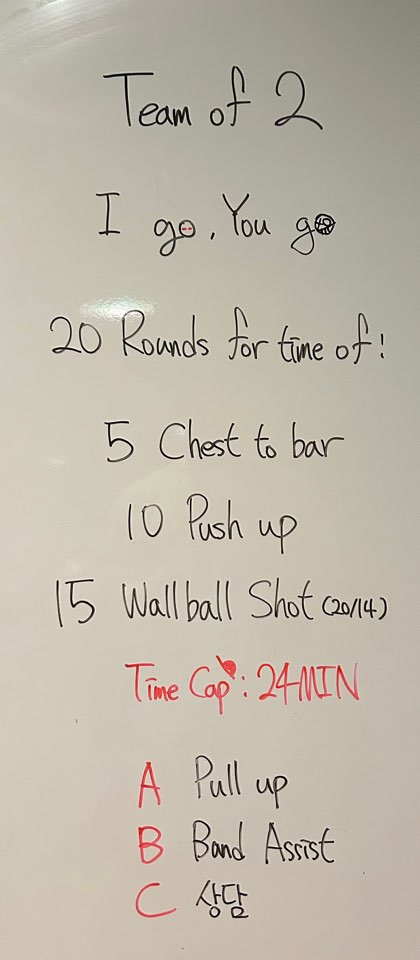 Team of 2
I go, You go
20 Rounds for time of!
5 Chest to bar
10 Push up
15 Wallball Shot (20/14)
Time Cap: 24MIN
A Pull up
B Band Assist
C 상담